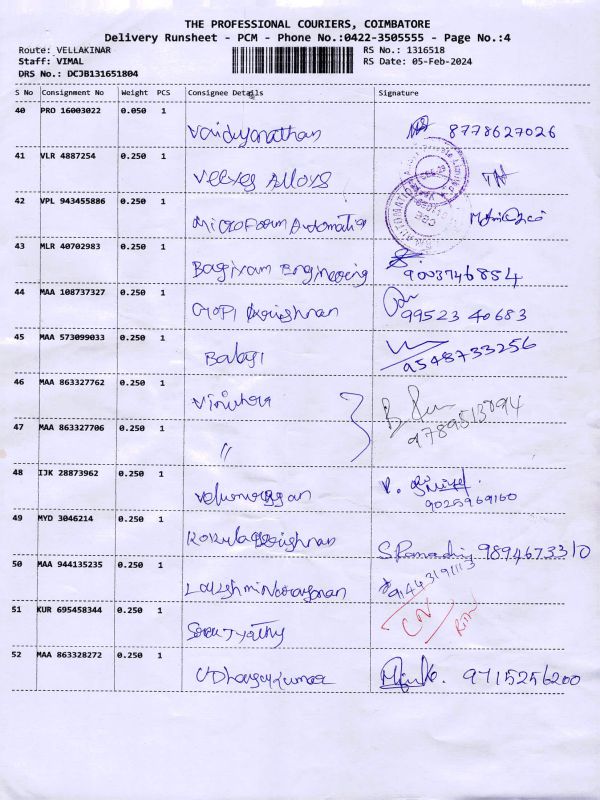 THE PROFESSIONAL COURIERS, COIMBATORE
Delivery Runsheet - PCM - Phone No.:0422-3505555 - Page No.:4
Route: VELLAKINAR RS No.: 1316518
Staff: VIMAL RS Date: 05-Feb-2024
DRS No.: DCJB131651804
S No Consignment No Weight PCS Consignee Details Signature
40 PRO 16003022 0.050 1
Vaidyanathan 8778627026
41 VLR 4887254 0.250 1
Veeyes Alloys
42 VPL 943455886 0.250 1
Microform Automation
43 MLR 40702983 0.250 1
Bagiyam Engineering 9003746854
44 MAA 108737327 0.250 1
Gopi Krishnan 99523 40683
45 MAA 573099033 0.250 1
Balaji 9548733256
46 MAA 863327762 0.250 1
47 MAA 863327706 0.250 1
"
48 IJK 28873962 0.250 1
Velmurugan 9025969160
49 MYD 3046214 0.250 1
Kokulakrishnan 9894673310
50 MAA 944135235 0.250 1
Lakshmi Narayanan
51 KUR 695458344 0.250 1
CN RTN
52 MAA 863328272 0.250 1
9715256200